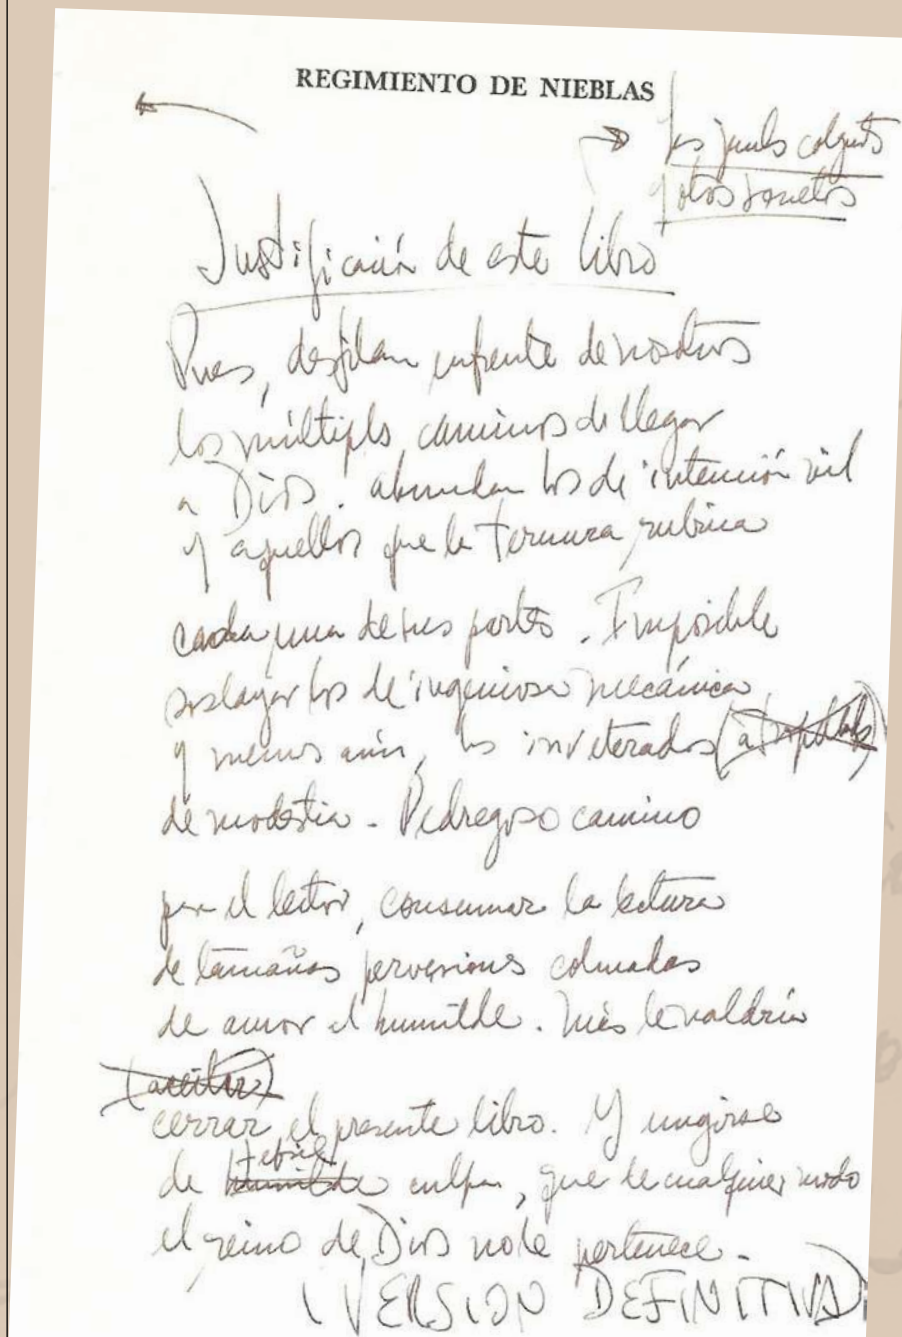 REGIMIENTO DE NIEBLAS
y otros sonetos
Justificación de este libro
Pues, desfilan enfrente de nosotros
los múltiples caminos de llegar
a Dios. abundan los de intención vil
y aquellos que la ternura rubrica
cada una de sus partes. Imposible
soslayar los de ingeniosa mecánica
y menos aún, los inveterados
de modestia. Pedregoso camino
para el lector, consumar la lectura
de tamañas perversiones colmadas
de amor al humilde. Más le valdría
cerrar el presente libro. Y ungirse
de humilde culpa, que de cualquier modo
el reino de Dios no le pertenece.
(VERSION DEFINITIVA)